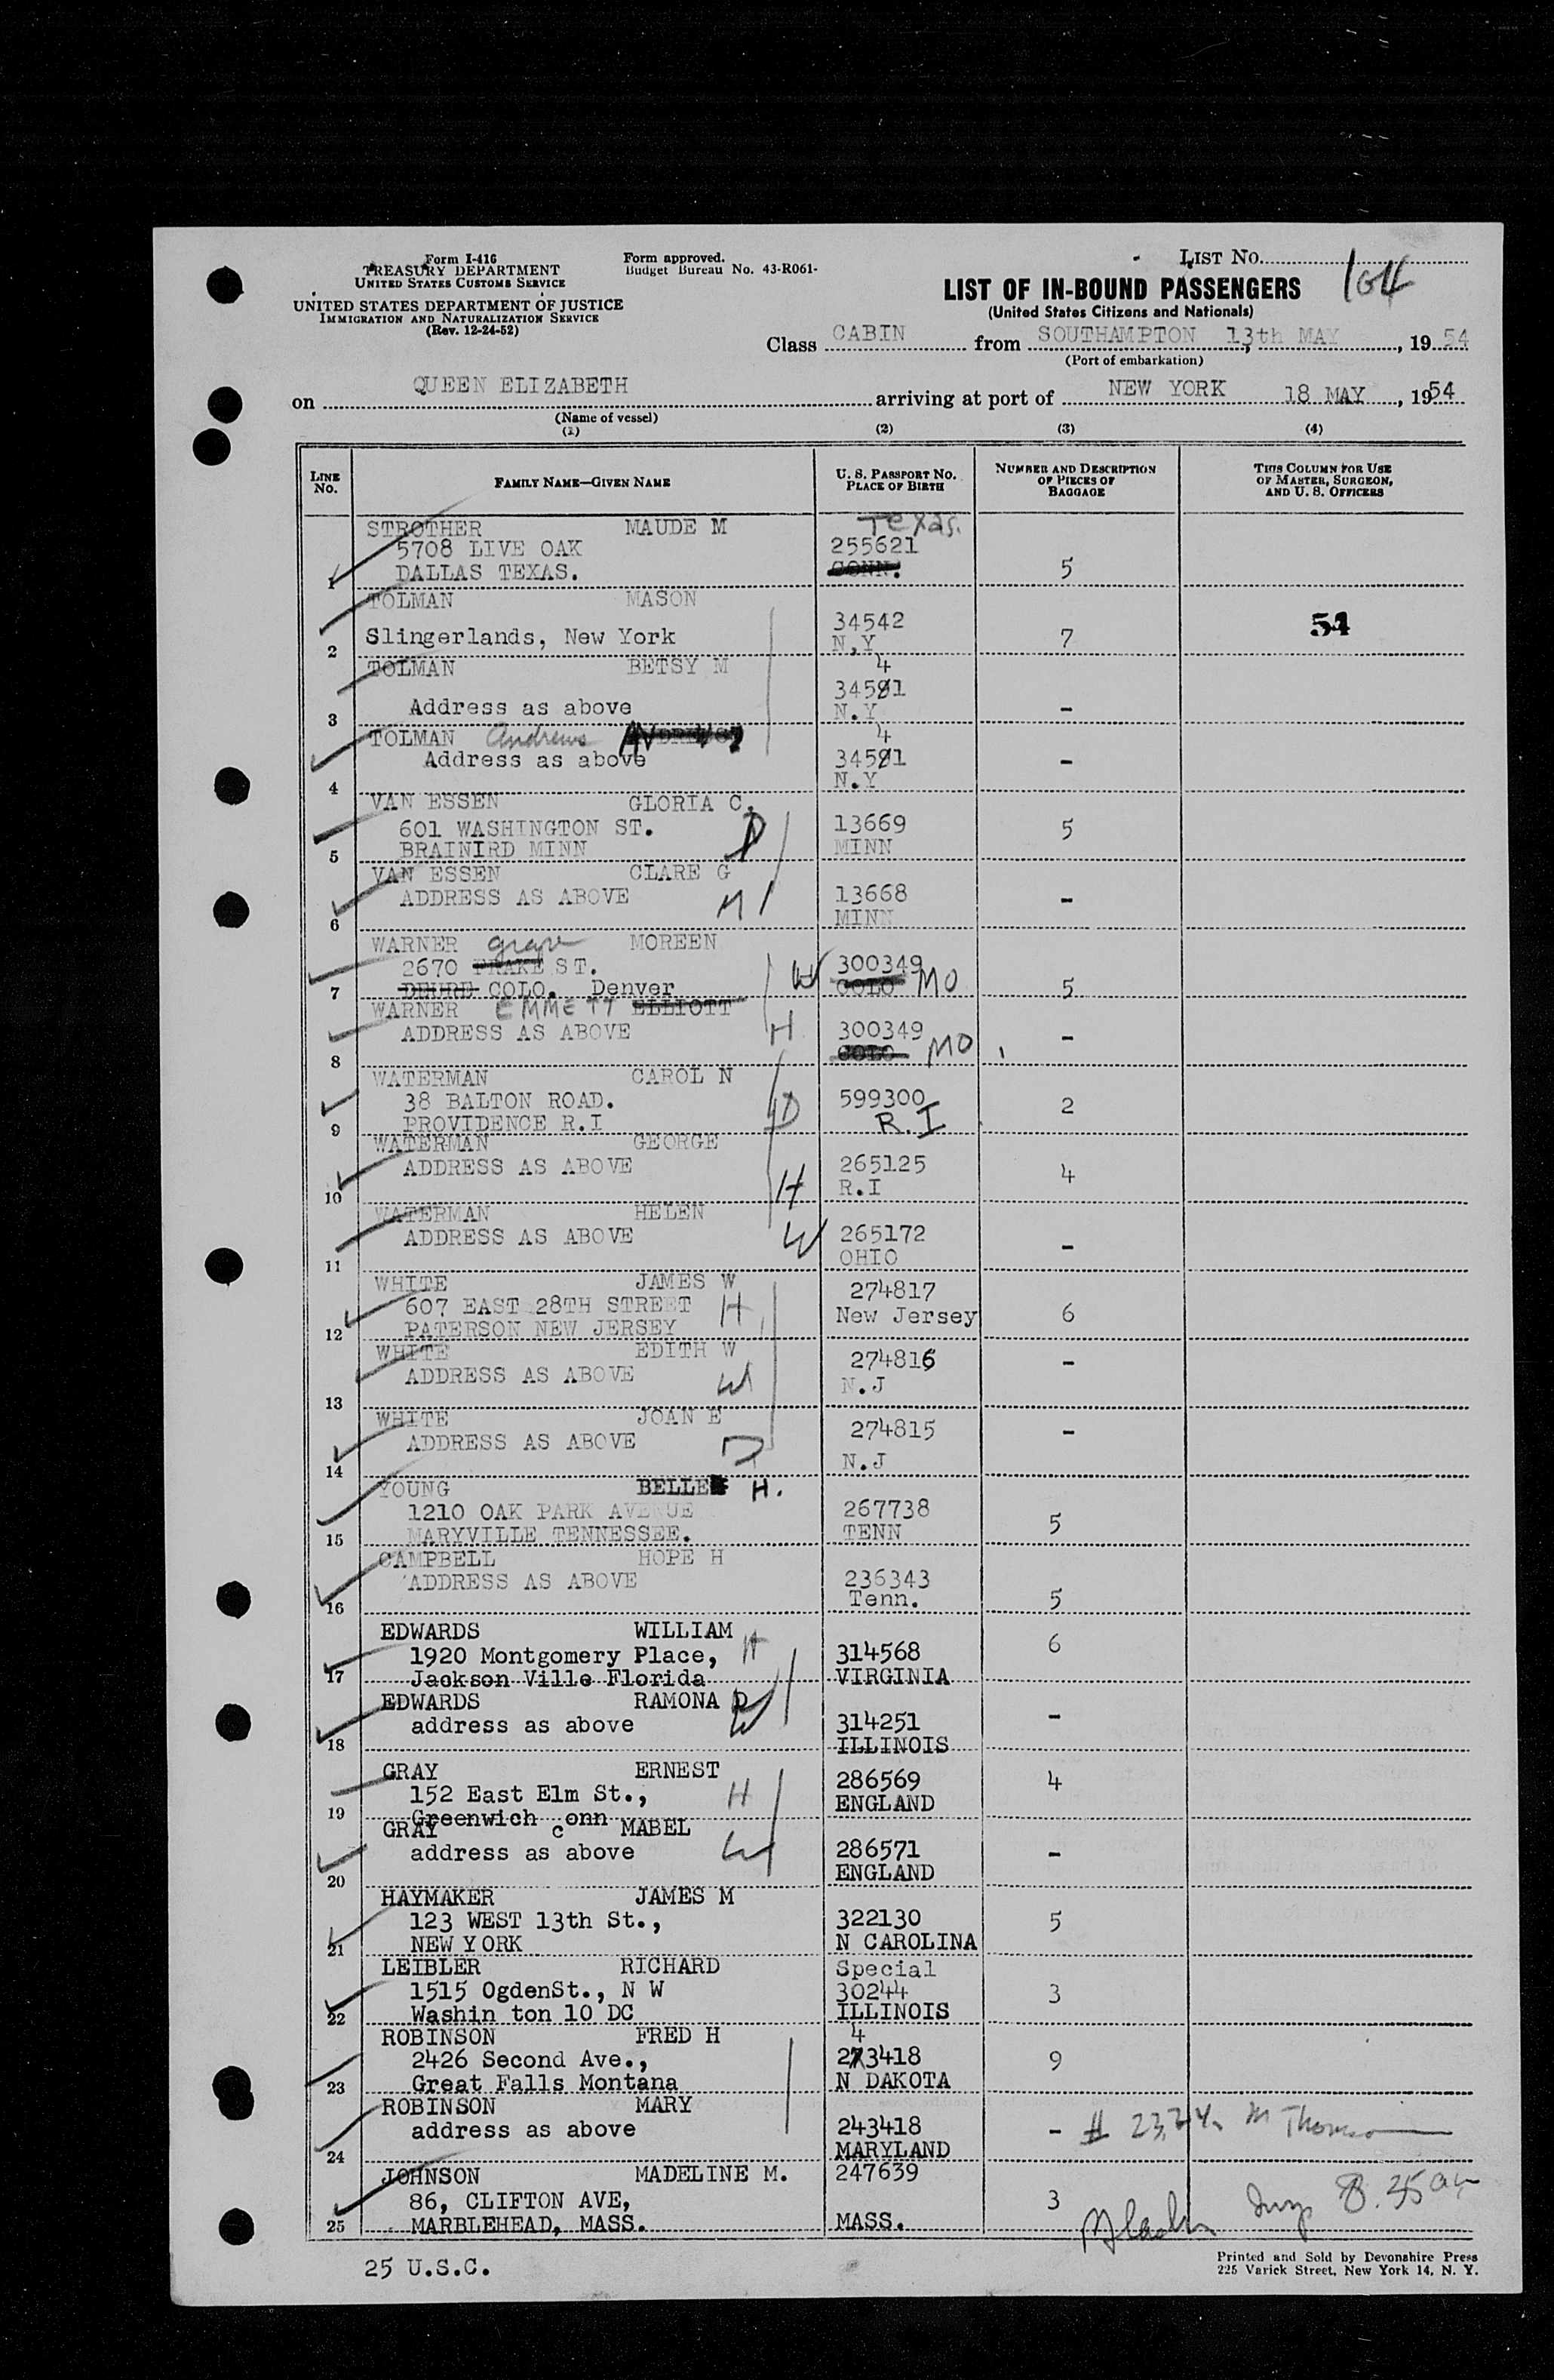 Form I-416
TREASURY DEPARTMENT
UNITED STATES CUSTOMS SERVICE
UNITED STATES DEPARTMENT OF JUSTICE
IMMIGRATION AND NATURALIZATION SERVICE
(Rev. 12-24-52)
Form approved.
Budget Bureau No. 43-R061-
LIST NO.
104
LIST OF IN-BOUND PASSENGERS
(United States Citizens and Nationals)
Class CABIN from SOUTHAMPTON 13th MAY, 1954
(Port of embarkation)
on QUEEN ELIZABETH arriving at port of NEW YORK 18 MAY, 1954
(Name of vessel)
(1) (2) (3) (4)
LINE NO. FAMILY NAME—GIVEN NAME U. S. PASSPORT NO. PLACE OF BIRTH NUMBER AND DESCRIPTION OF PIECES OF BAGGAGE THIS COLUMN FOR USE OF MASTER, SURGEON, AND U. S. OFFICERS
STROTHER MAUDE M Texas.
5708 LIVE OAK 255621
1 DALLAS TEXAS. CONN. 5
TOLMAN MASON
34542 54
2 Slingerlands, New York N.Y 7
TOLMAN BETSY M 4
34581
3 Address as above N.Y -
TOLMAN Andrews 4
Address as above 34581 -
4 N.Y
VAN ESSEN GLORIA C.
601 WASHINGTON ST. D 13669 5
5 BRAINIRD MINN MINN
VAN ESSEN CLARE G
ADDRESS AS ABOVE M 13668 -
6 MINN
WARNER MOREEN
2670 ST. W 300349
7 COLO. Denver COLO MO 5
WARNER EMMETT ELLIOTT
ADDRESS AS ABOVE H 300349 -
8 COLO MO
WATERMAN CAROL N
38 BALTON ROAD. D 599300 2
9 PROVIDENCE R.I R.I
WATERMAN GEORGE
ADDRESS AS ABOVE 265125 4
10 H R.I
WATERMAN HELEN
ADDRESS AS ABOVE W 265172 -
11 OHIO
WHITE JAMES W 274817
607 EAST 28TH STREET H New Jersey 6
12 PATERSON NEW JERSEY
WHITE EDITH W 274816 -
ADDRESS AS ABOVE W N.J
13
WHITE JOAN E 274815 -
ADDRESS AS ABOVE D
14 N.J
YOUNG BELLE H.
1210 OAK PARK AVENUE 267738 5
15 MARYVILLE TENNESSEE. TENN
CAMPBELL HOPE H
ADDRESS AS ABOVE 236343
16 Tenn. 5
EDWARDS WILLIAM 6
1920 Montgomery Place, H 314568
17 Jackson Ville Florida VIRGINIA
EDWARDS RAMONA D -
address as above W 314251
18 ILLINOIS
GRAY ERNEST 286569 4
152 East Elm St., H ENGLAND
19 Greenwich conn
GRAY MABEL
address as above W 286571 -
20 ENGLAND
HAYMAKER JAMES M
123 WEST 13th St., 322130 5
21 NEW YORK N CAROLINA
LEIBLER RICHARD Special
1515 OgdenSt., N W 30244 3
22 Washin ton 10 DC ILLINOIS
ROBINSON FRED H 4
2426 Second Ave., 273418 9
23 Great Falls Montana N DAKOTA
ROBINSON MARY
address as above 243418 - # 23,24
24 MARYLAND
JOHNSON MADELINE M. 247639
86, CLIFTON AVE, 3 8.35 am
25 MARBLEHEAD, MASS. MASS.
25 U.S.C.
Printed and Sold by Devonshire Press
225 Varick Street, New York 14, N. Y.